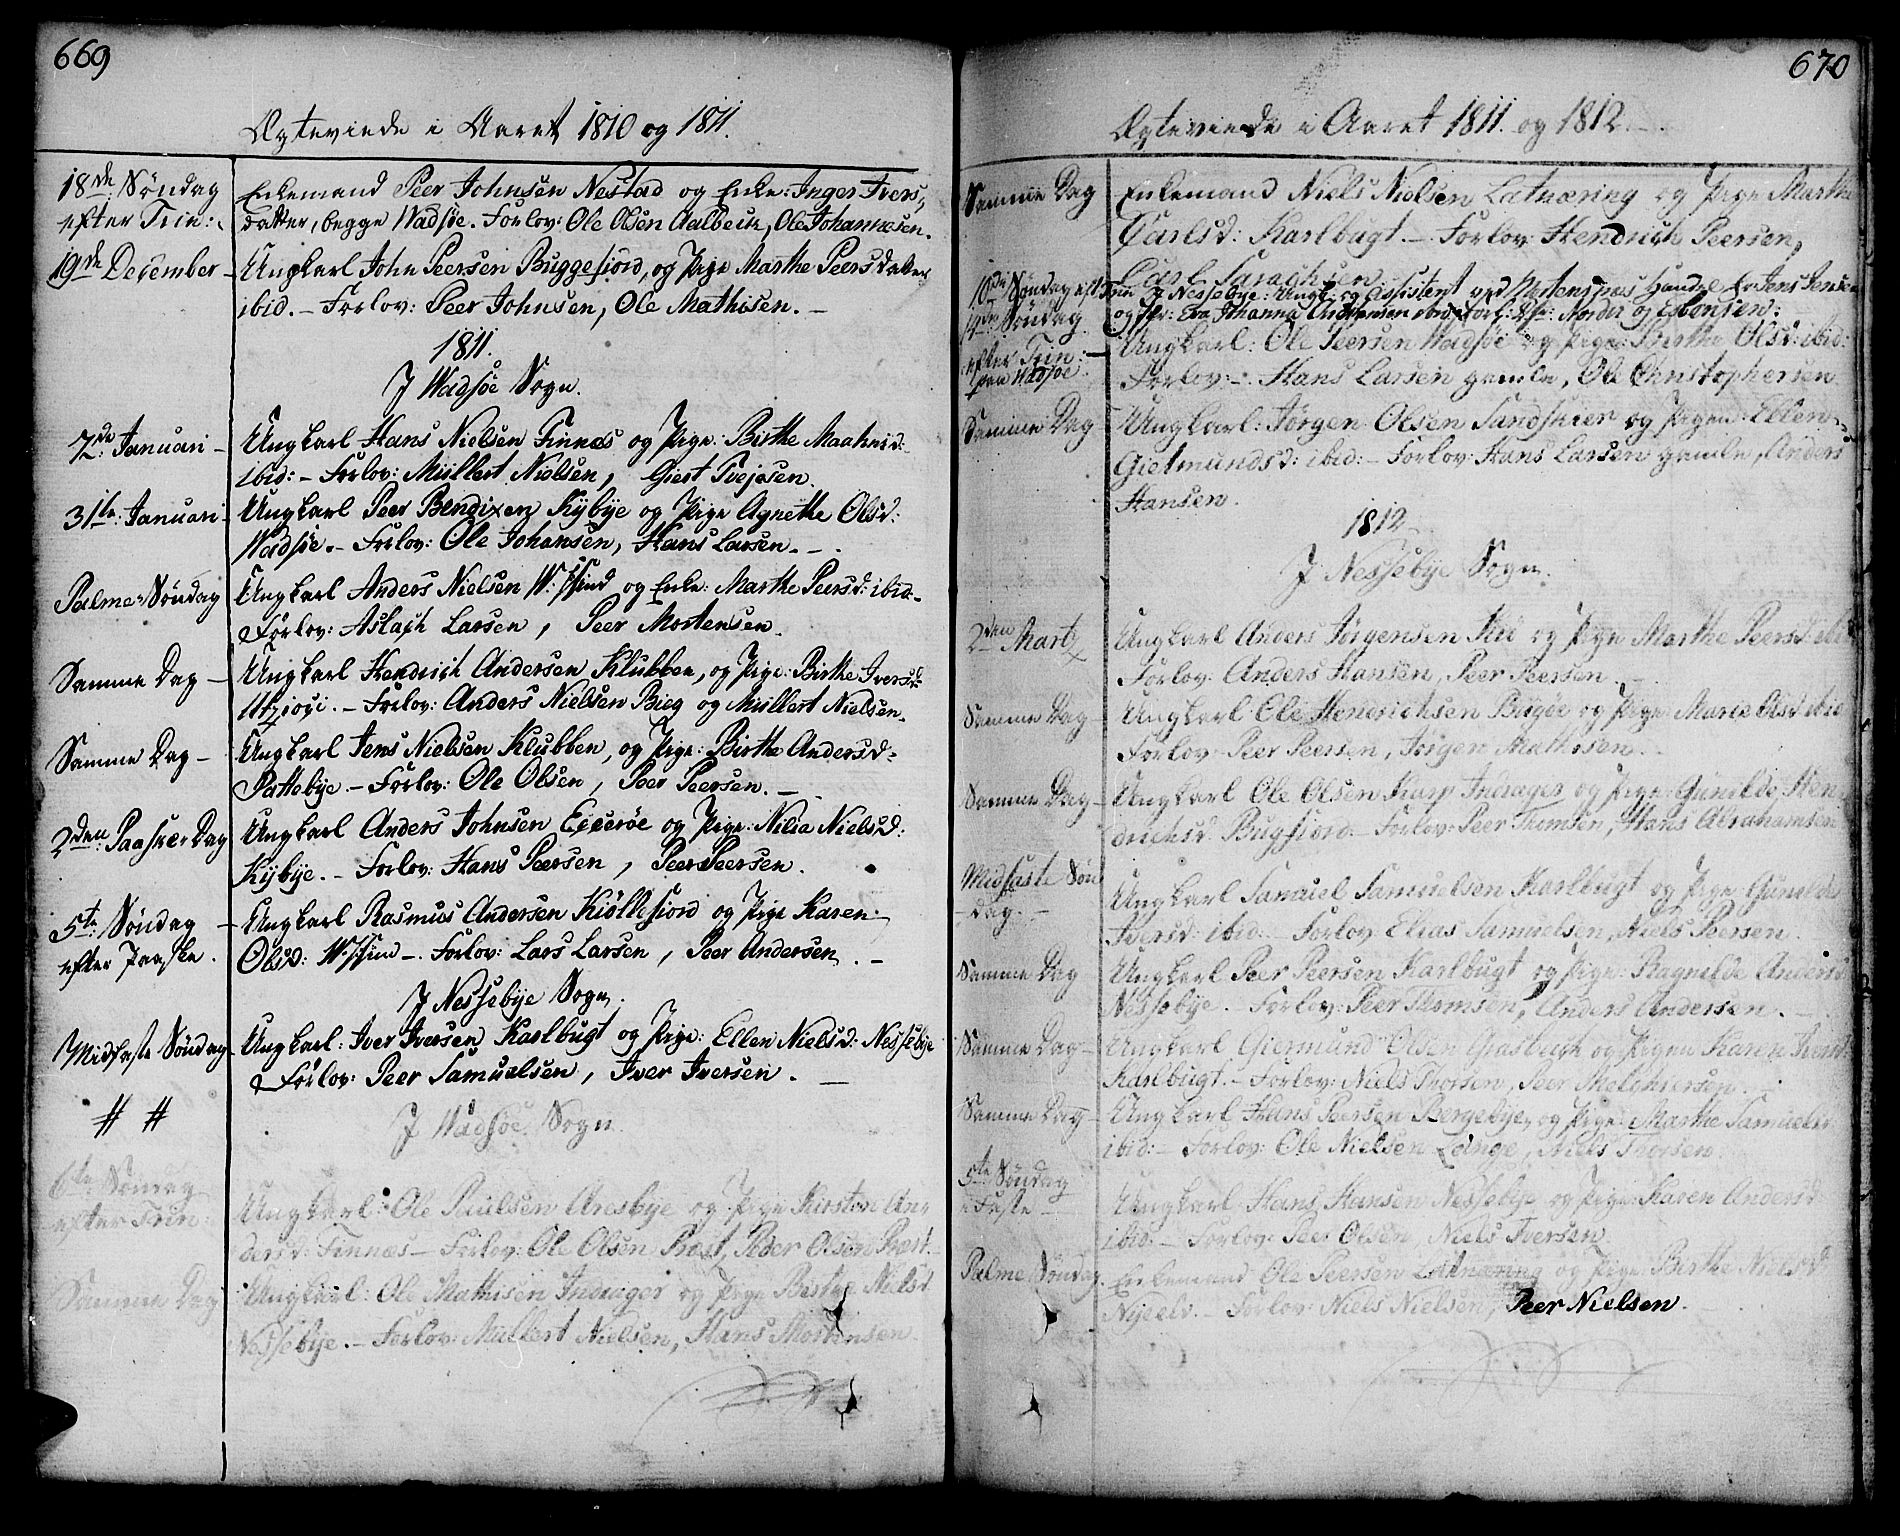 669
Ægteviede i Aaret 1810 og 1811.
18de Søndag efter Trin:
Enkemand Peer Johnsen Nestad og Enke: Inger Ivers,,
datter, begge Wadsøe. Forlov: Ole Olsen Aalbech, Ole Johannesen.
19de December –
Ungkarl John Peersen Buggefiord, og Pige Marthe Peersdatter
ibid. – Forlov: Peer Johnsen, Ole Mathisen. –
1811.
I Wadsøe Sogn.
7de Januari –
Ungkarl Hans Nielsen Finnæs og Pige: Birthe
ibid: – Forlov: Müllert Nielsen, Giert
31te Januari –
Ungkarl Peer Bendixen Kybye og Pige Agnethe Olsd:
Wadsøe. – Forlov: Ole Johansen, Hans Larsen. –
Palme-Søndag
Ungkarl Anders Nielsen og Enke: Marthe Peersd: ibid. –
Forlov: Aslach Larsen, Peer Mortensen.
Samme Dag –
Ungkarl Hendrich Andersen Klubben, og Pige: Birthe Iversd:
– Forlov: Anders Nielsen Bieg og Müllert Nielsen.
Samme Dag –
Ungkarl Jens Nielsen Klubben, og Pige: Birthe Andersd:
Pattebye. – Forlov: Ole Olsen, Peer Peersen. –
2den Paaske-Dag
Ungkarl Anders Johnsen Eccerøe og Pige: Nilia Nielsd:
Kybye. – Forlov: Hans Peersen, Peer Peersen.
5te Søndag –
efter Paaske.
Ungkarl Rasmus Andersen Kiøllefiord og Pige Karen
Olsd: – Forlov: Lars Larsen, Peer Andersen. –
I Nessebye Sogn.
Midfaste Søndag –
Ungkarl: Iver Iversen Karlbugt og Pige: Ellen Nielsd: Nessebye
Forlov: Peer Samuelsen, Iver Iversen. –
# #
I Wadsøe Sogn.
6te Søndag
efter Trin:
Ungkarl: Ole Paulsen Aresbye og Pige Kirsten An,,
dersd: Finnæs – Forlov: Ole Olsen Præst, Peder Olsen Præst. –
Samme Dag
Ungkarl: Ole Mathisen Indrager og Pige Nielsd
Nessebye. – Forlov: Müllert Nielsen, Hans Mortensen.
670
Ægteviede i Aaret 1811. og 1812. –
Samme Dag
Enkemand Niels Nielsen Latnæring og Pige Marthe
Carlsd: Karlbugt. – Forlov: Hendrich Peersen,
Carl
10de Søndag eft Trin I Nessebye: Ungk: og Assistent ved Mortensnes Handel Hr Jens Jensen
og Jfr: Eva Johanna ibid Forl: Hr: Norder og Esbensen:
Søndag
efter Trin: –
paa Wadsøe.
Ungkarl: Ole Peersen Wadsøe og Pige: Birthe Olsd: ibid:
Forlov: – Hans Larsen gamle, Ole Christophersen
Samme Dag
Ungkarl: Jørgen Olsen Sandskier og Pigen: Ellen
Gietmundsd: ibid: – Forlov: Hans Larsen gamle, Anders
Hansen.
1812
I Nessebye Sogn.
2den Martz
Ungkarl Anders Jørgensen og Pige Marthe Peersd: ibid
Forlov: Anders Hansen, Peer Peersen. –
Samme Dag –
Ungkarl Ole Henrichsen Bugøe og Pige: Maren Olsd: ibid
Forlov: Peer Peersen, Jørgen Mathisen. –
Samme Dag –
Ungkarl Ole Olsen Karp Indrager og Pige: Gunilde Hen,,
drichsd: Bugfiord. – Forlov: Peer Thomsen, Hans Abrahamsen
Midfaste Søn
– dag. –
Ungkarl Samuel Samuelsen Karlbugt og Pige: Gunelde
Iversd: ibid. – Forlov: Elias Samuelsen, Niels Peersen.
Samme Dag
Ungkarl Peer Peersen Karlbugt og Pige: Ragnelde Andersd
Nessebye. – Forlov: Peer Thomsen, Anders Andersen. –
Samme Dag –
Ungkarl Giermund Olsen Grasbach og Pigen Karen Iversd:
Karlbugt. – Forlov: Niels Thorsen, Peer Melchiersen. –
Samme Dag –
Ungkarl Hans Peersen Bergebye, og Pige: Marthe Samuelsd:
ibid: – Forlov: Ole Nielsen Lange, Niels Thorsen.
5te Søndag
i Faste –
Ungkarl Hans Hansen Nessebye og Pige: Karen Andersd
ibid. – Forlov: Peer Olsen, Niels Iversen.
Palme Søndag.
Enkemand Ole Peersen Latnæring og Pige: Birthe Nielsd
Nyeelv. – Forlov: Niels Nielsen, Peer Nielsen.